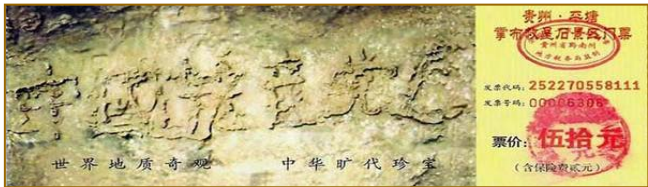 中国共产党亡
世界地质奇观 中华旷代珍宝
贵州·平塘
掌布藏字石景区门票
贵州省黔南州
地方税务局监制
发票代码: 252270558111
发票号码: 00006306
票价: 伍拾元
(含保险费贰元)